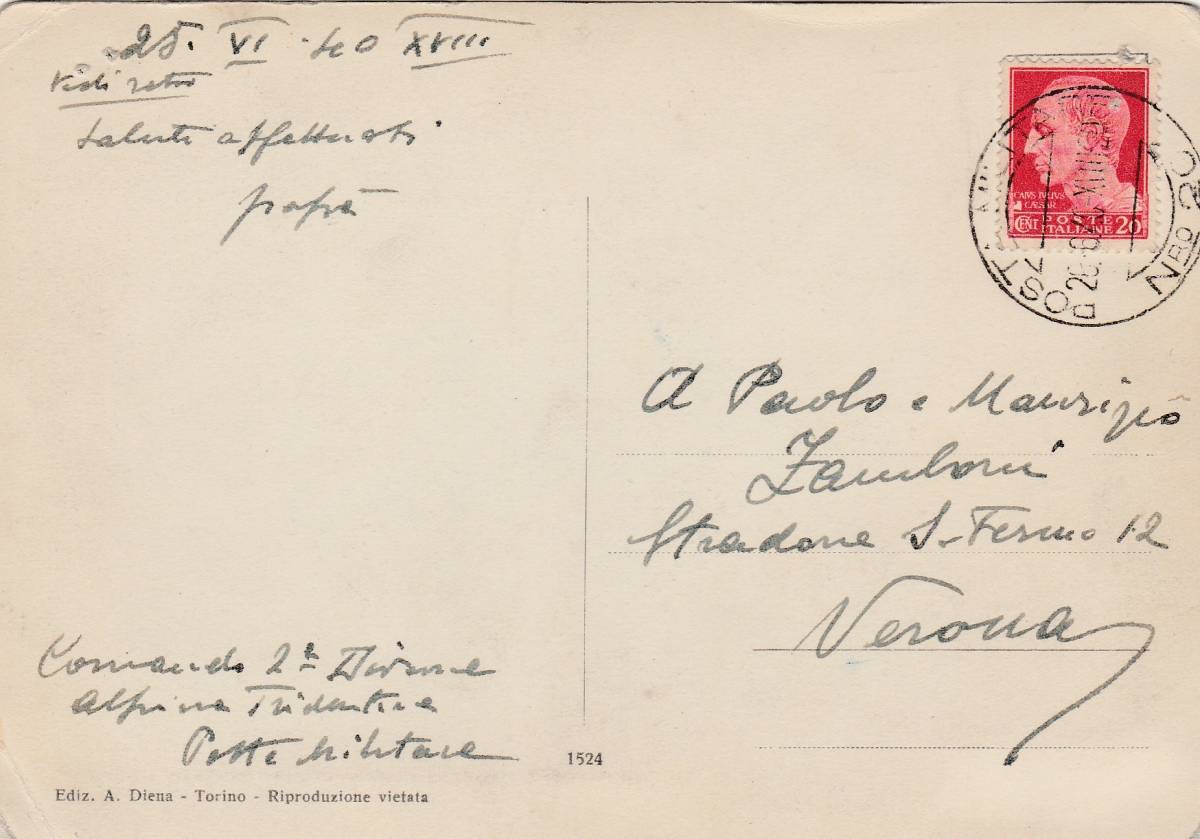 25. VI 40 XVIII
Vedi retro
Saluti affettuosi
papà
CAIVS IVLIVS
CAESAR
CENT POSTE ITALIANE 20
POSTA MILITARE
26.6.40.XVIII
Nro 2
A Paolo e Maurizio
Zamboni
Stradone S. Fermo 12
Verona
Comando 2ª Divisione
Alpina Tridentina
Posta Militare
1524
Ediz. A. Diena - Torino - Riproduzione vietata